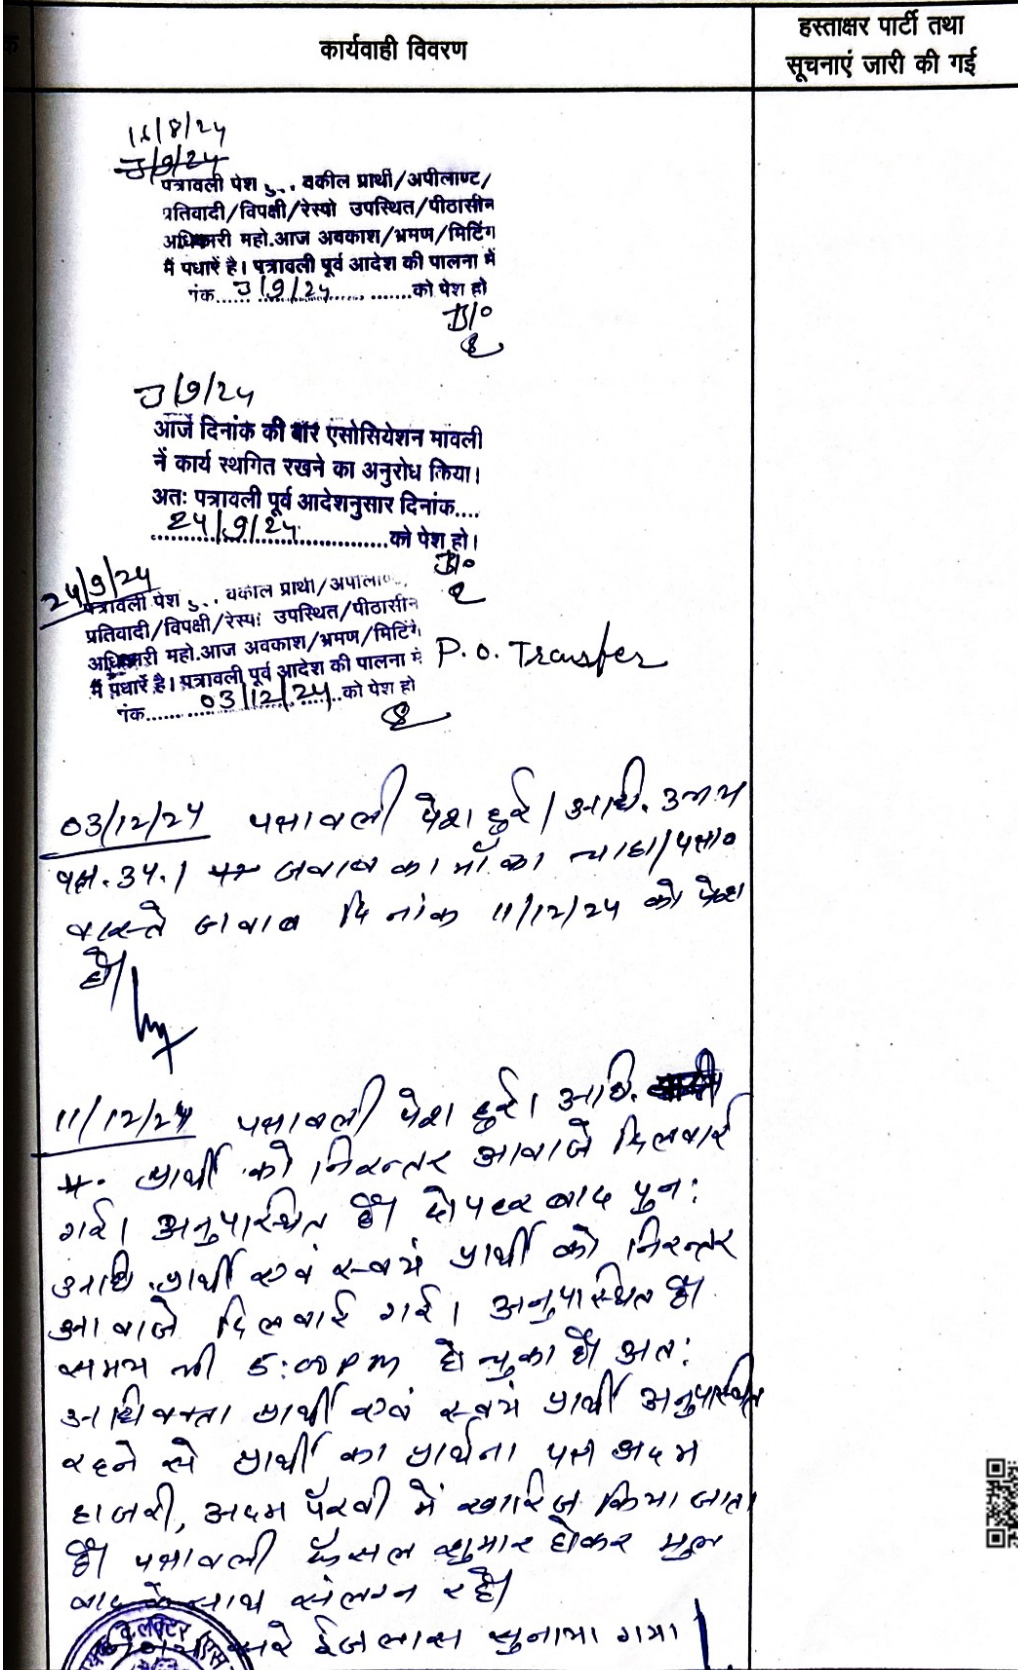 कार्यवाही विवरण
हस्ताक्षर पार्टी तथा
सूचनाएं जारी की गई
/8/24
3/9/24
पत्रावली पेश वकील प्रार्थी/अपीलाण्ट/
प्रतिवादी/विपक्षी/रेस्पो उपस्थित/पीठासीन
अधिकारी महो.आज अवकाश/भ्रमण/मिटिंग
में पधारें है। पत्रावली पूर्व आदेश की पालना में
3/9/24 को पेश हो
3/9/24
आज दिनांक को बार एसोसियेशन मावली
नें कार्य स्थगित रखने का अनुरोध किया।
अतः पत्रावली पूर्व आदेशनुसार दिनांक....
24/9/24 को पेश हो।
24/9/24
पत्रावली पेश वकील प्रार्थी/
प्रतिवादी/विपक्षी/रेस्पो उपस्थित/पीठासीन
अधिकारी महो.आज अवकाश/भ्रमण/मिटिंग
में पधारें है। पत्रावली पूर्व आदेश की पालना में
03/12/24 को पेश हो
P.O. Transfer
03/12/24 पत्रावली पेश हुई। अधि. उभय
पक्ष. उप.। जवाब का मौका चाहा/पत्रा०
वास्ते जवाब दिनांक 11/12/24 को पेश
हो।
11/12/24 पत्रावली पेश हुई। अधि.
प्रार्थी को निरन्तर आवाजे दिलवाई
गई। अनुपस्थित है। दोपहर बाद पुन:
अधि. प्रार्थी एवं स्वयं प्रार्थी को निरन्तर
आवाजे दिलवाई गई। अनुपस्थित है।
समय भी 5:00 PM हो चुका है। अत:
अधिवक्ता प्रार्थी एवं स्वयं प्रार्थी अनुपस्थित
रहने से प्रार्थी का प्रार्थना पत्र अदम
हाजरी, अदम पैरवी में खारिज किया जाता
है। पत्रावली फैसल शुमार होकर मुल
वाद के साथ संलग्न रहे।
सरे ईजलास सुनाया गया